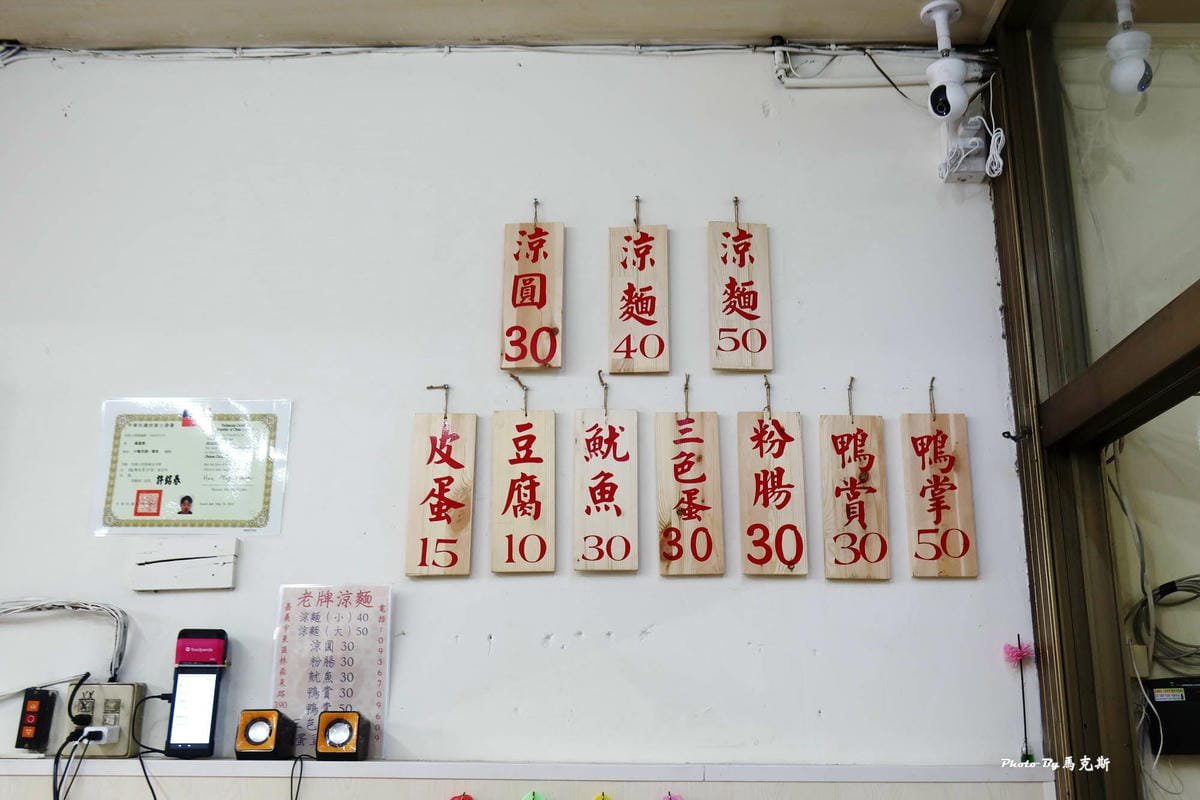 涼圓30
涼麵40
涼麵50
皮蛋15
豆腐10
魷魚30
三色蛋30
粉腸30
鴨賞30
鴨掌50
許銘春
老牌涼麵
涼麵(小)40
涼麵(大)50
涼圓 30
粉腸 30
魷魚 30
鴨賞 30
50
foodpanda
Photo By 馬克斯